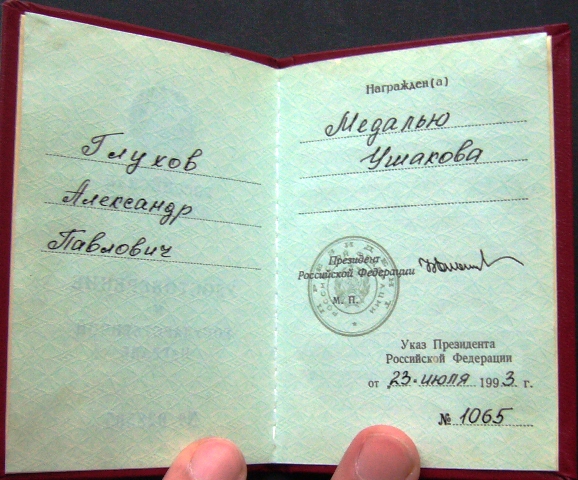 Глухов
Александр
Павлович
Награжден(а)
Медалью
Ушакова
Президент
Российской Федерации
М. П.
Указ Президента
Российской Федерации
от 23 июля 1993 г.
№ 1065